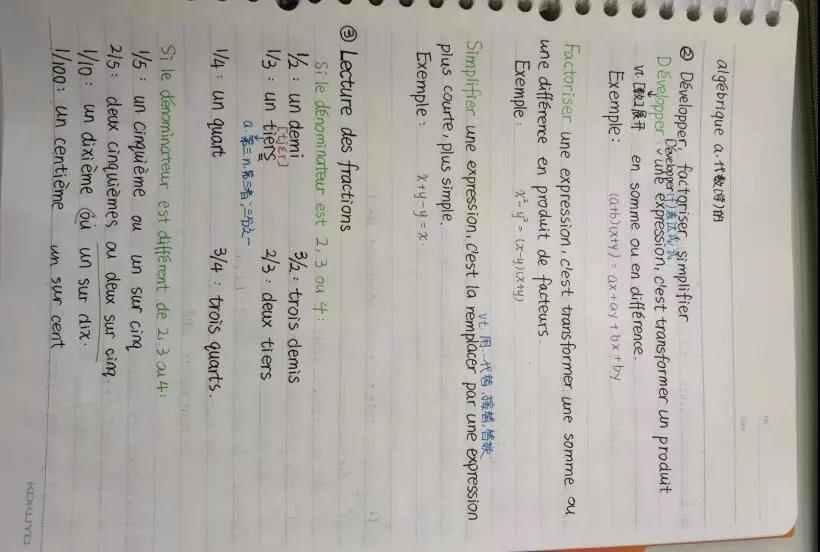 No.
Date
algébrique a.代数(学)的
② Développer, factoriser, simplifier
Développer(代)方程式、式
Développer : une expression, c'est transformer un produit
vt.[数]展开 en somme ou en différence.
Exemple : (a+b)(x+y) = ax+ay+bx+by
Factoriser une expression, c'est transformer une somme ou
une différence en produit de facteurs.
Exemple : x²-y² = (x-y)(x+y)
vt 用…代替,接替,替换
Simplifier une expression, c'est la remplacer par une expression
plus courte, plus simple.
Exemple : x+y-y=x.
③ Lecture des fractions
Si le dénominateur est 2, 3 ou 4 :
1/2 : un demi 3/2 : trois demis
[tjɛr]
1/3 : un tiers 2/3 : deux tiers
a.第三 n.第三者;三分之一
1/4 : un quart 3/4 : trois quarts.
Si le dénominateur est différent de 2, 3 ou 4 :
1/5 : un cinquième ou un sur cinq
2/5 : deux cinquièmes ou deux sur cinq.
1/10 : un dixième où un sur dix.
1/100 : un centième un sur cent
KOKUYO